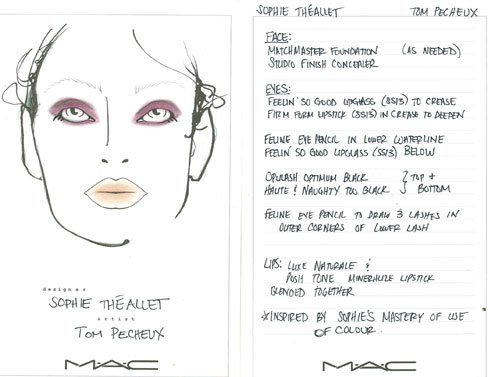 designer
SOPHIE THÉALLET
artist
TOM PECHEUX
M·A·C
SOPHIE THÉALLET TOM PECHEUX
FACE:
MATCHMASTER FOUNDATION (AS NEEDED)
STUDIO FINISH CONCEALER
EYES:
FEELIN' SO GOOD LIPGLASS (SS13) TO CREASE
FIRM FORM LIPSTICK (SS13) IN CREASE TO DEEPEN
FELINE EYE PENCIL IN LOWER WATERLINE
FEELIN' SO GOOD LIPGLASS (SS13) BELOW
OPULASH OPTIMUM BLACK } TOP +
HAUTE & NAUGHTY TOO BLACK BOTTOM
FELINE EYE PENCIL TO DRAW 3 LASHES IN
OUTER CORNERS OF LOWER LASH
LIPS: LUXE NATURALE &
PUSH TONE MINERALIZE LIPSTICK
BLENDED TOGETHER
*INSPIRED BY SOPHIE'S MASTERY OF USE
OF COLOUR.
M·A·C